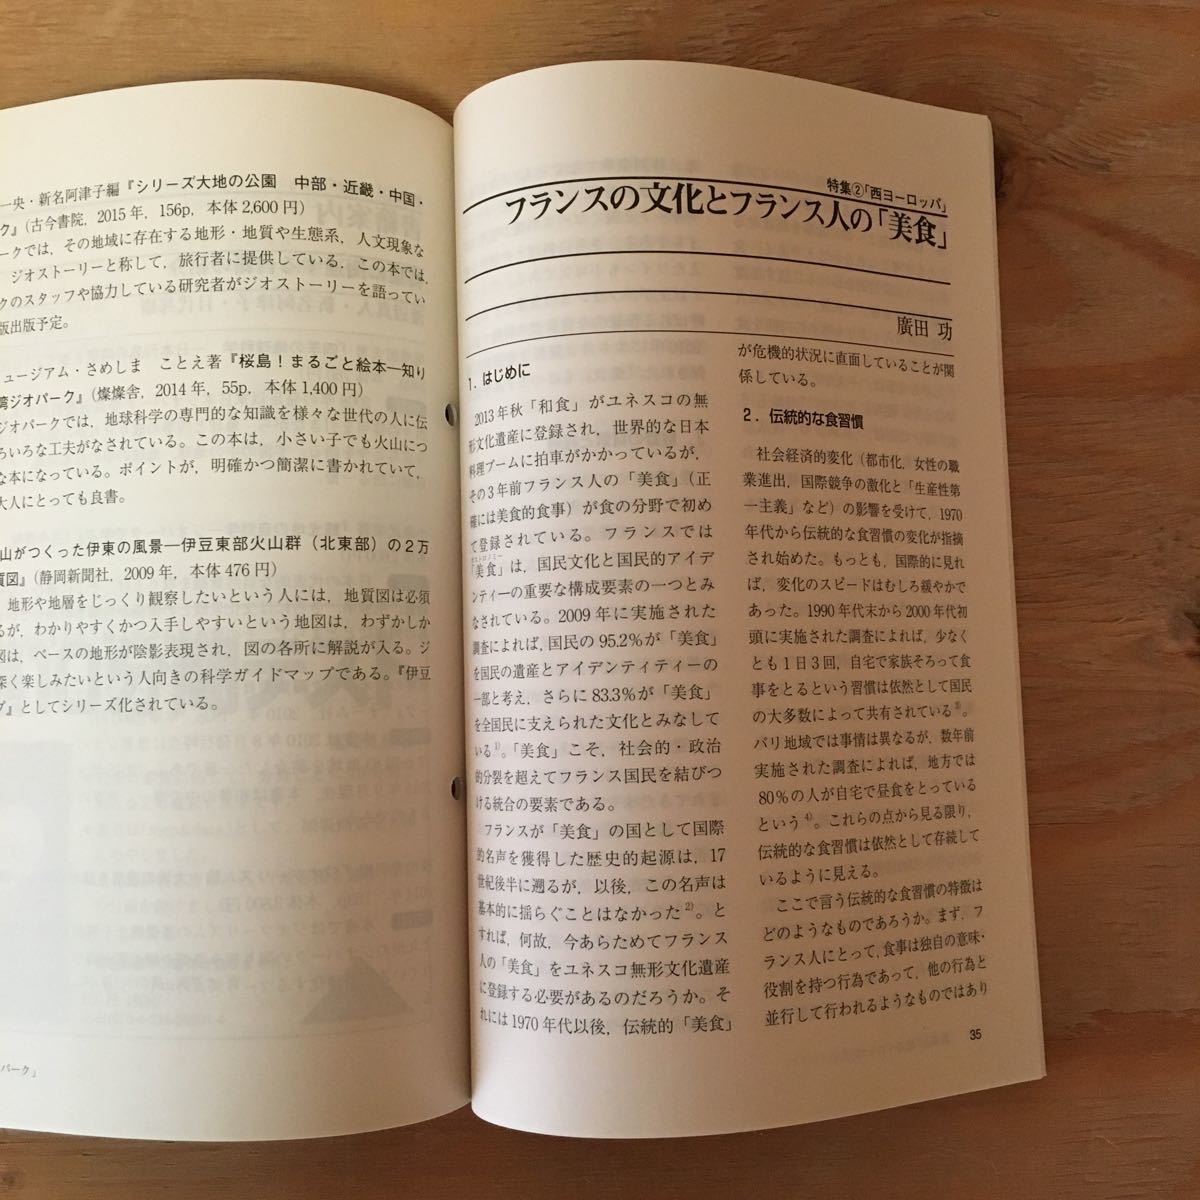 一央・新名阿津子編『シリーズ大地の公園　中部・近畿・中国・
ク』(古今書院, 2015年, 156p, 本体2,600円)
ークでは, その地域に存在する地形・地質や生態系, 人文現象な
ジオストーリーと称して, 旅行者に提供している. この本では,
クのスタッフや協力している研究者がジオストーリーを語ってい
版出版予定。
ュージアム・さめしま　ことえ著『桜島！まるごと絵本―知り
湾ジオパーク』(燦燦舎, 2014年, 55p, 本体1,400円)
ジオパークでは, 地球科学の専門的な知識を様々な世代の人に伝
ろいろな工夫がなされている。この本は, 小さい子でも火山につ
な本になっている。ポイントが, 明確かつ簡潔に書かれていて,
大人にとっても良書。
山がつくった伊東の風景―伊豆東部火山群(北東部)の2万
質図』(静岡新聞社, 2009年, 本体476円)
地形や地層をじっくり観察したいという人には, 地質図は必須
るが, わかりやすくかつ入手しやすいという地図は, わずかしか
図は, ベースの地形が陰影表現され, 図の各所に解説が入る。ジ
深く楽しみたいという人向きの科学ガイドマップである。『伊豆
プ』としてシリーズ化されている。
パーク」
特集②「西ヨーロッパ」
フランスの文化とフランス人の「美食」
廣田 功
1. はじめに
2013年秋「和食」がユネスコの無
形文化遺産に登録され, 世界的な日本
料理ブームに拍車がかかっているが,
その3年前フランス人の「美食」(正
確には美食的食事)が食の分野で初め
て登録されている。フランスでは
「美食」は, 国民文化と国民的アイデ
ンティーの重要な構成要素の一つとみ
なされている。2009年に実施された
調査によれば, 国民の95.2%が「美食」
を国民の遺産とアイデンティティーの
一部と考え, さらに83.3%が「美食」
を全国民に支えられた文化とみなして
いる1)。「美食」こそ, 社会的・政治
的分裂を超えてフランス国民を結びつ
ける統合の要素である。
フランスが「美食」の国として国際
的名声を獲得した歴史的起源は, 17
世紀後半に遡るが, 以後, この名声は
基本的に揺らぐことはなかった2)。と
すれば, 何故, 今あらためてフランス
人の「美食」をユネスコ無形文化遺産
に登録する必要があるのだろうか。そ
れには1970年代以後, 伝統的「美食」
が危機的状況に直面していることが関
係している。
2. 伝統的な食習慣
社会経済的変化(都市化, 女性の職
業進出, 国際競争の激化と「生産性第
一主義」など)の影響を受けて, 1970
年代から伝統的な食習慣の変化が指摘
され始めた。もっとも, 国際的に見れ
ば, 変化のスピードはむしろ緩やかで
あった。1990年代末から2000年代初
頭に実施された調査によれば, 少なく
とも1日3回, 自宅で家族そろって食
事をとるという習慣は依然として国民
の大多数によって共有されている3)。
パリ地域では事情は異なるが, 数年前
実施された調査によれば, 地方では
80%の人が自宅で昼食をとっている
という4)。これらの点から見る限り,
伝統的な食習慣は依然として存続して
いるように見える。
ここで言う伝統的な食習慣の特徴は
どのようなものであろうか。まず, フ
ランス人にとって, 食事は独自の意味・
役割を持つ行為であって, 他の行為と
並行して行われるようなものではあり
35